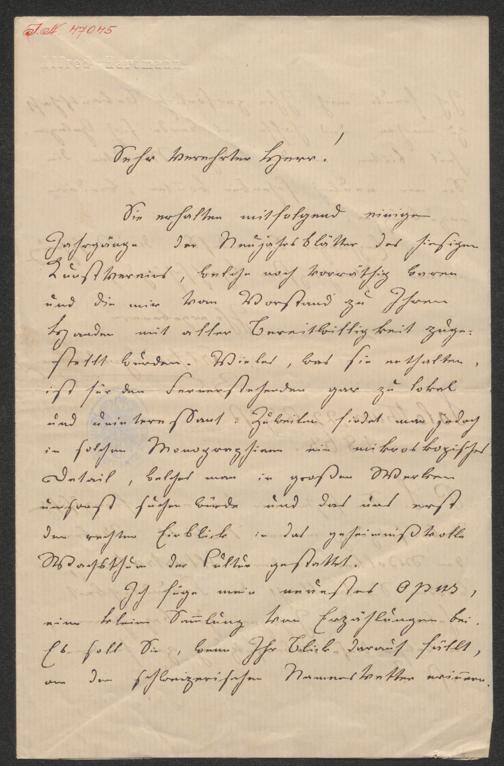 I.N. 47045
Alfred Hartmann
Sehr verehrter Herr!
Sie erhalten mitfolgend einige
Jahrgänge der Neujahrsblätter des hiesigen
Kunstvereins, welche noch vorräthig waren
und die mir vom Vorstand zu Ihren
Handen mit aller Bereitwilligkeit zuge-
stellt wurden. Vieles, was sie enthalten,
ist für den Fernerstehenden gar zu lokal
und uninteressant; zuweilen findet man jedoch
in solchen Monographieen ein mikroskopisches
Detail, welches man in großen Werken
umsonst suchen würde und das uns erst
den rechten Einblick in das geheimnißvolle
Wachsthum der Cultur gestattet.
Ich füge mein neuestes opus,
eine kleine Sammlung von Erzählungen bei.
Es soll Sie, wenn Ihr Blick darauf fällt,
an den schweizerischen Namensvetter erinnern.